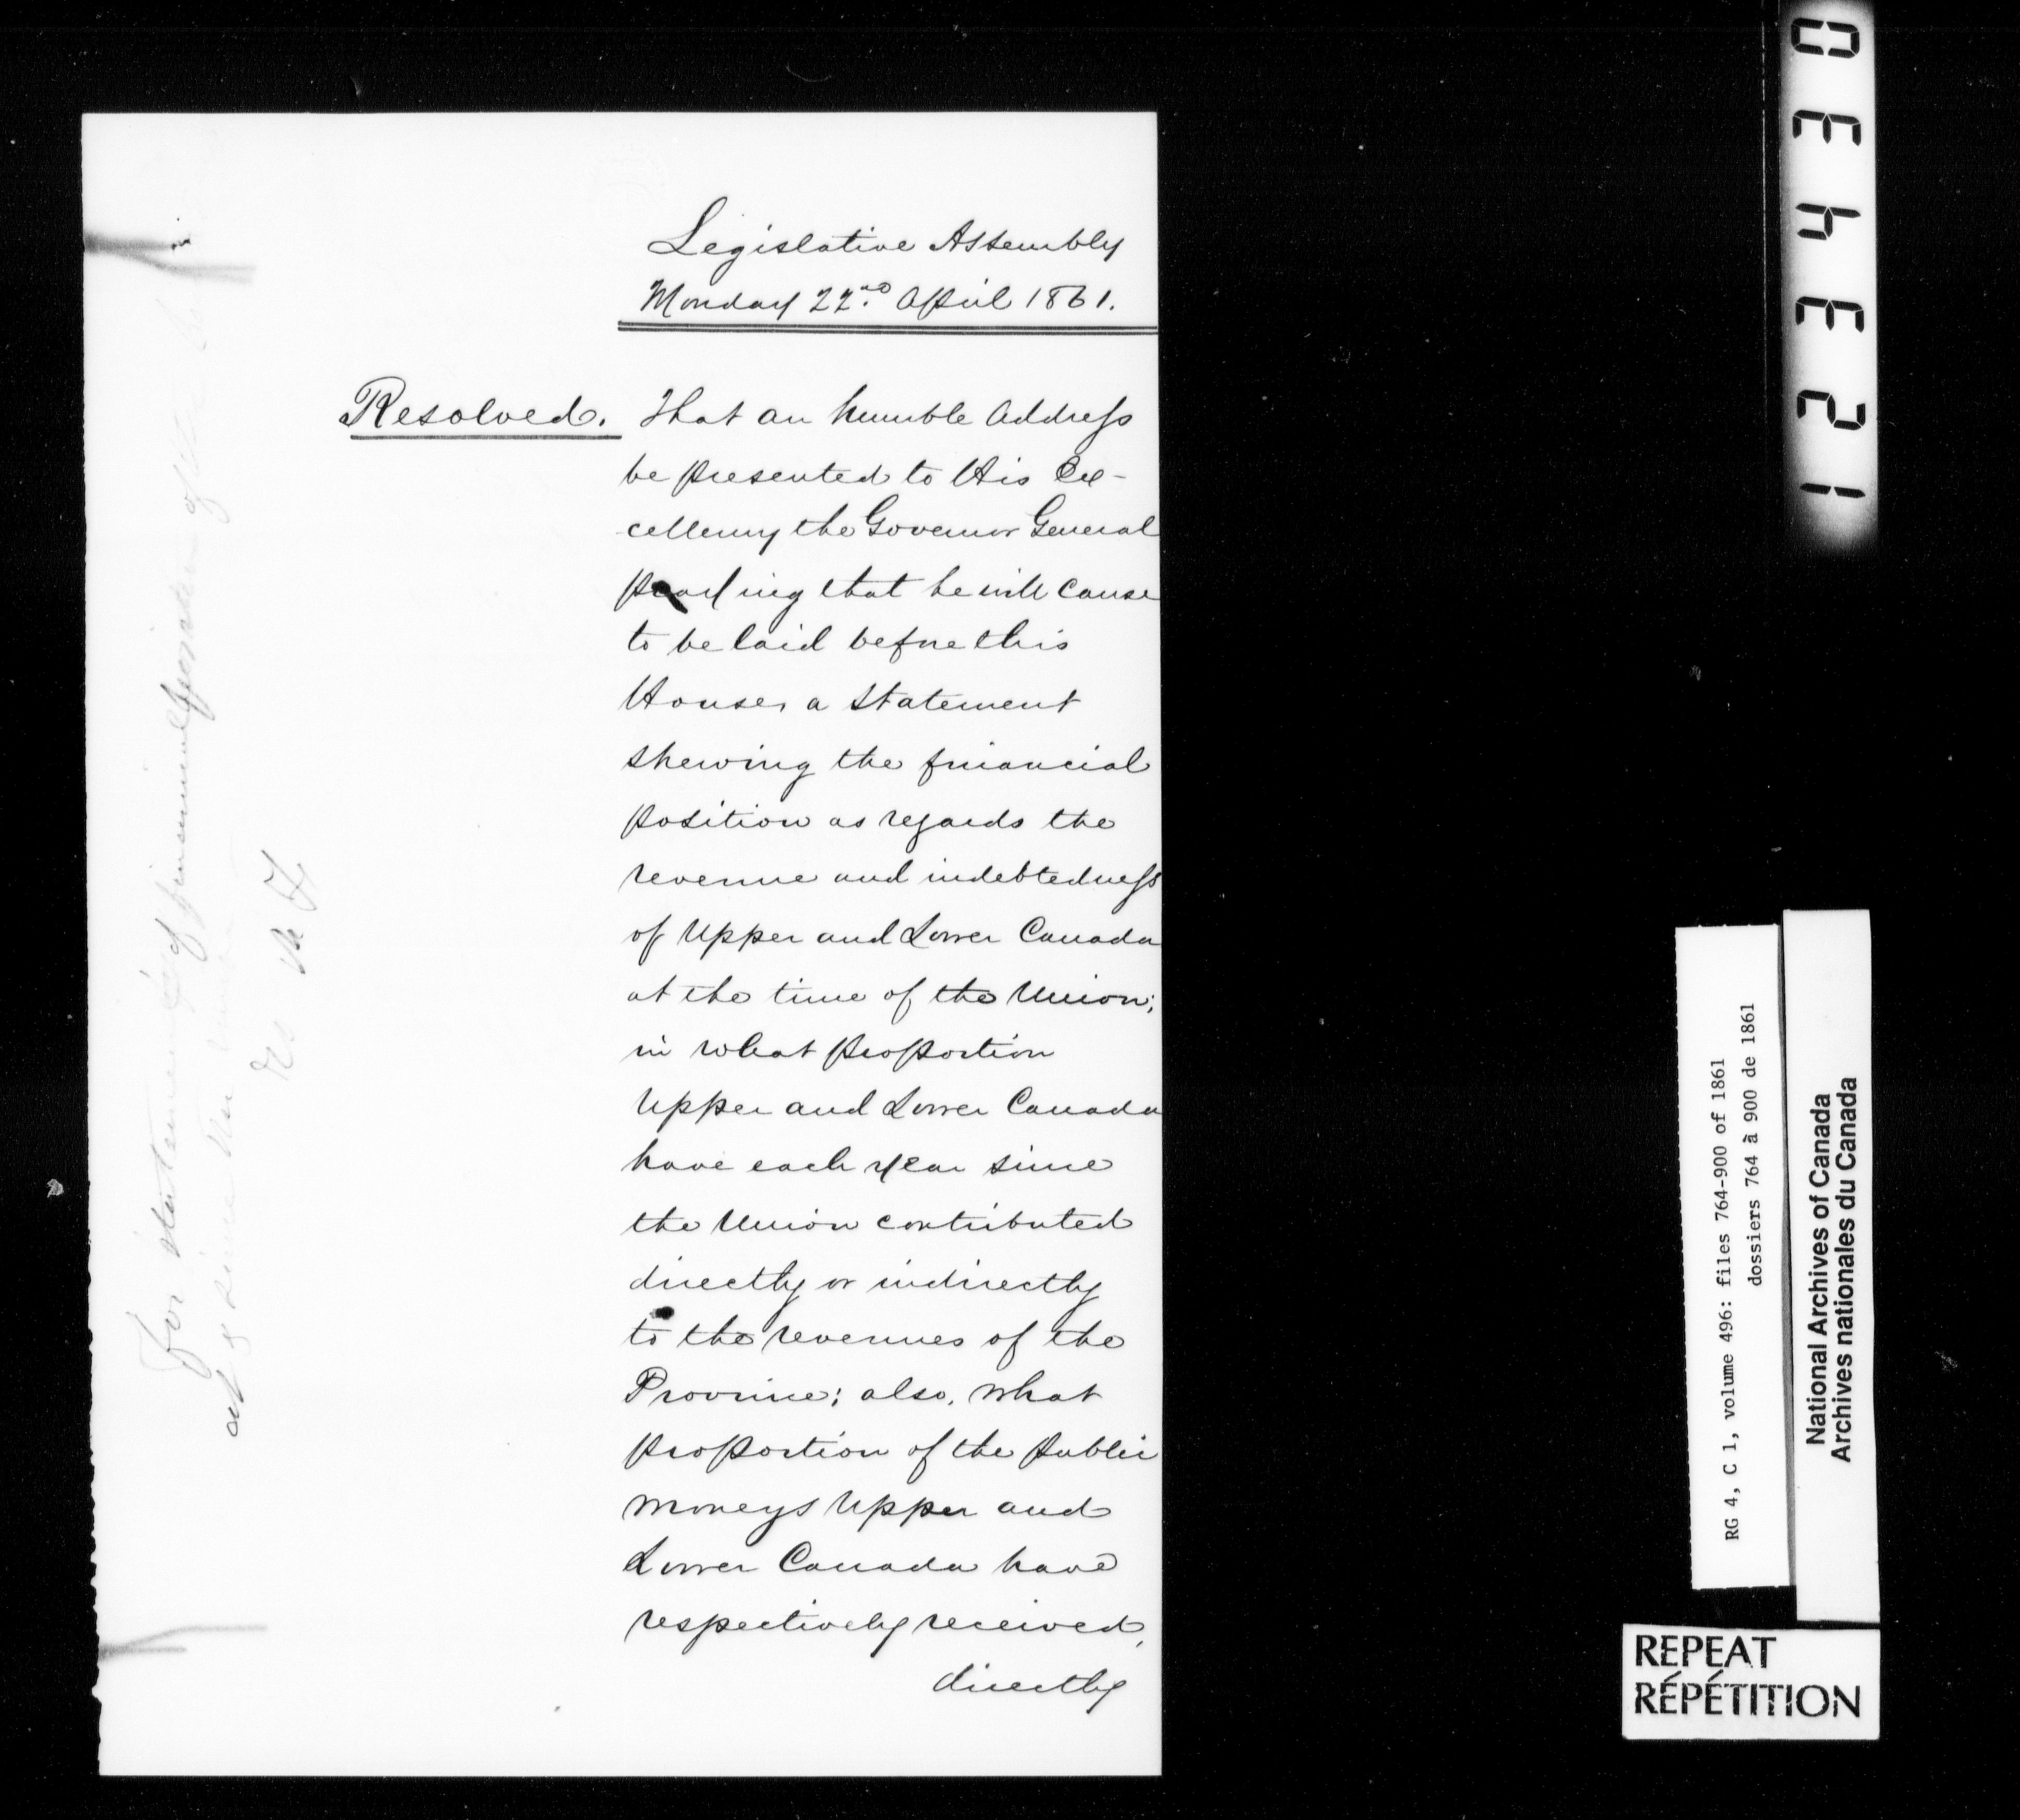 Legislative Assembly
Monday 22nd April 1861.
Resolved. That an humble Address
be presented to His Ex-
cellency the Governor General
praying that he will cause
to be laid before this
House, a statement
shewing the financial
position as regards the
revenue and indebtedness
of Upper and Lower Canada
at the time of the Union;
in what proportion
Upper and Lower Canada
have each year since
the Union contributed
directly or indirectly
to the revenues of the
Province; also, what
proportion of the public
moneys Upper and
Lower Canada have
respectively received,
directly
For statement of financial position of
at & since the Union
012343
RG 4, C 1, volume 496: files 764-900 of 1861
dossiers 764 à 900 de 1861
National Archives of Canada
Archives nationales du Canada
REPEAT
RÉPÉTITION